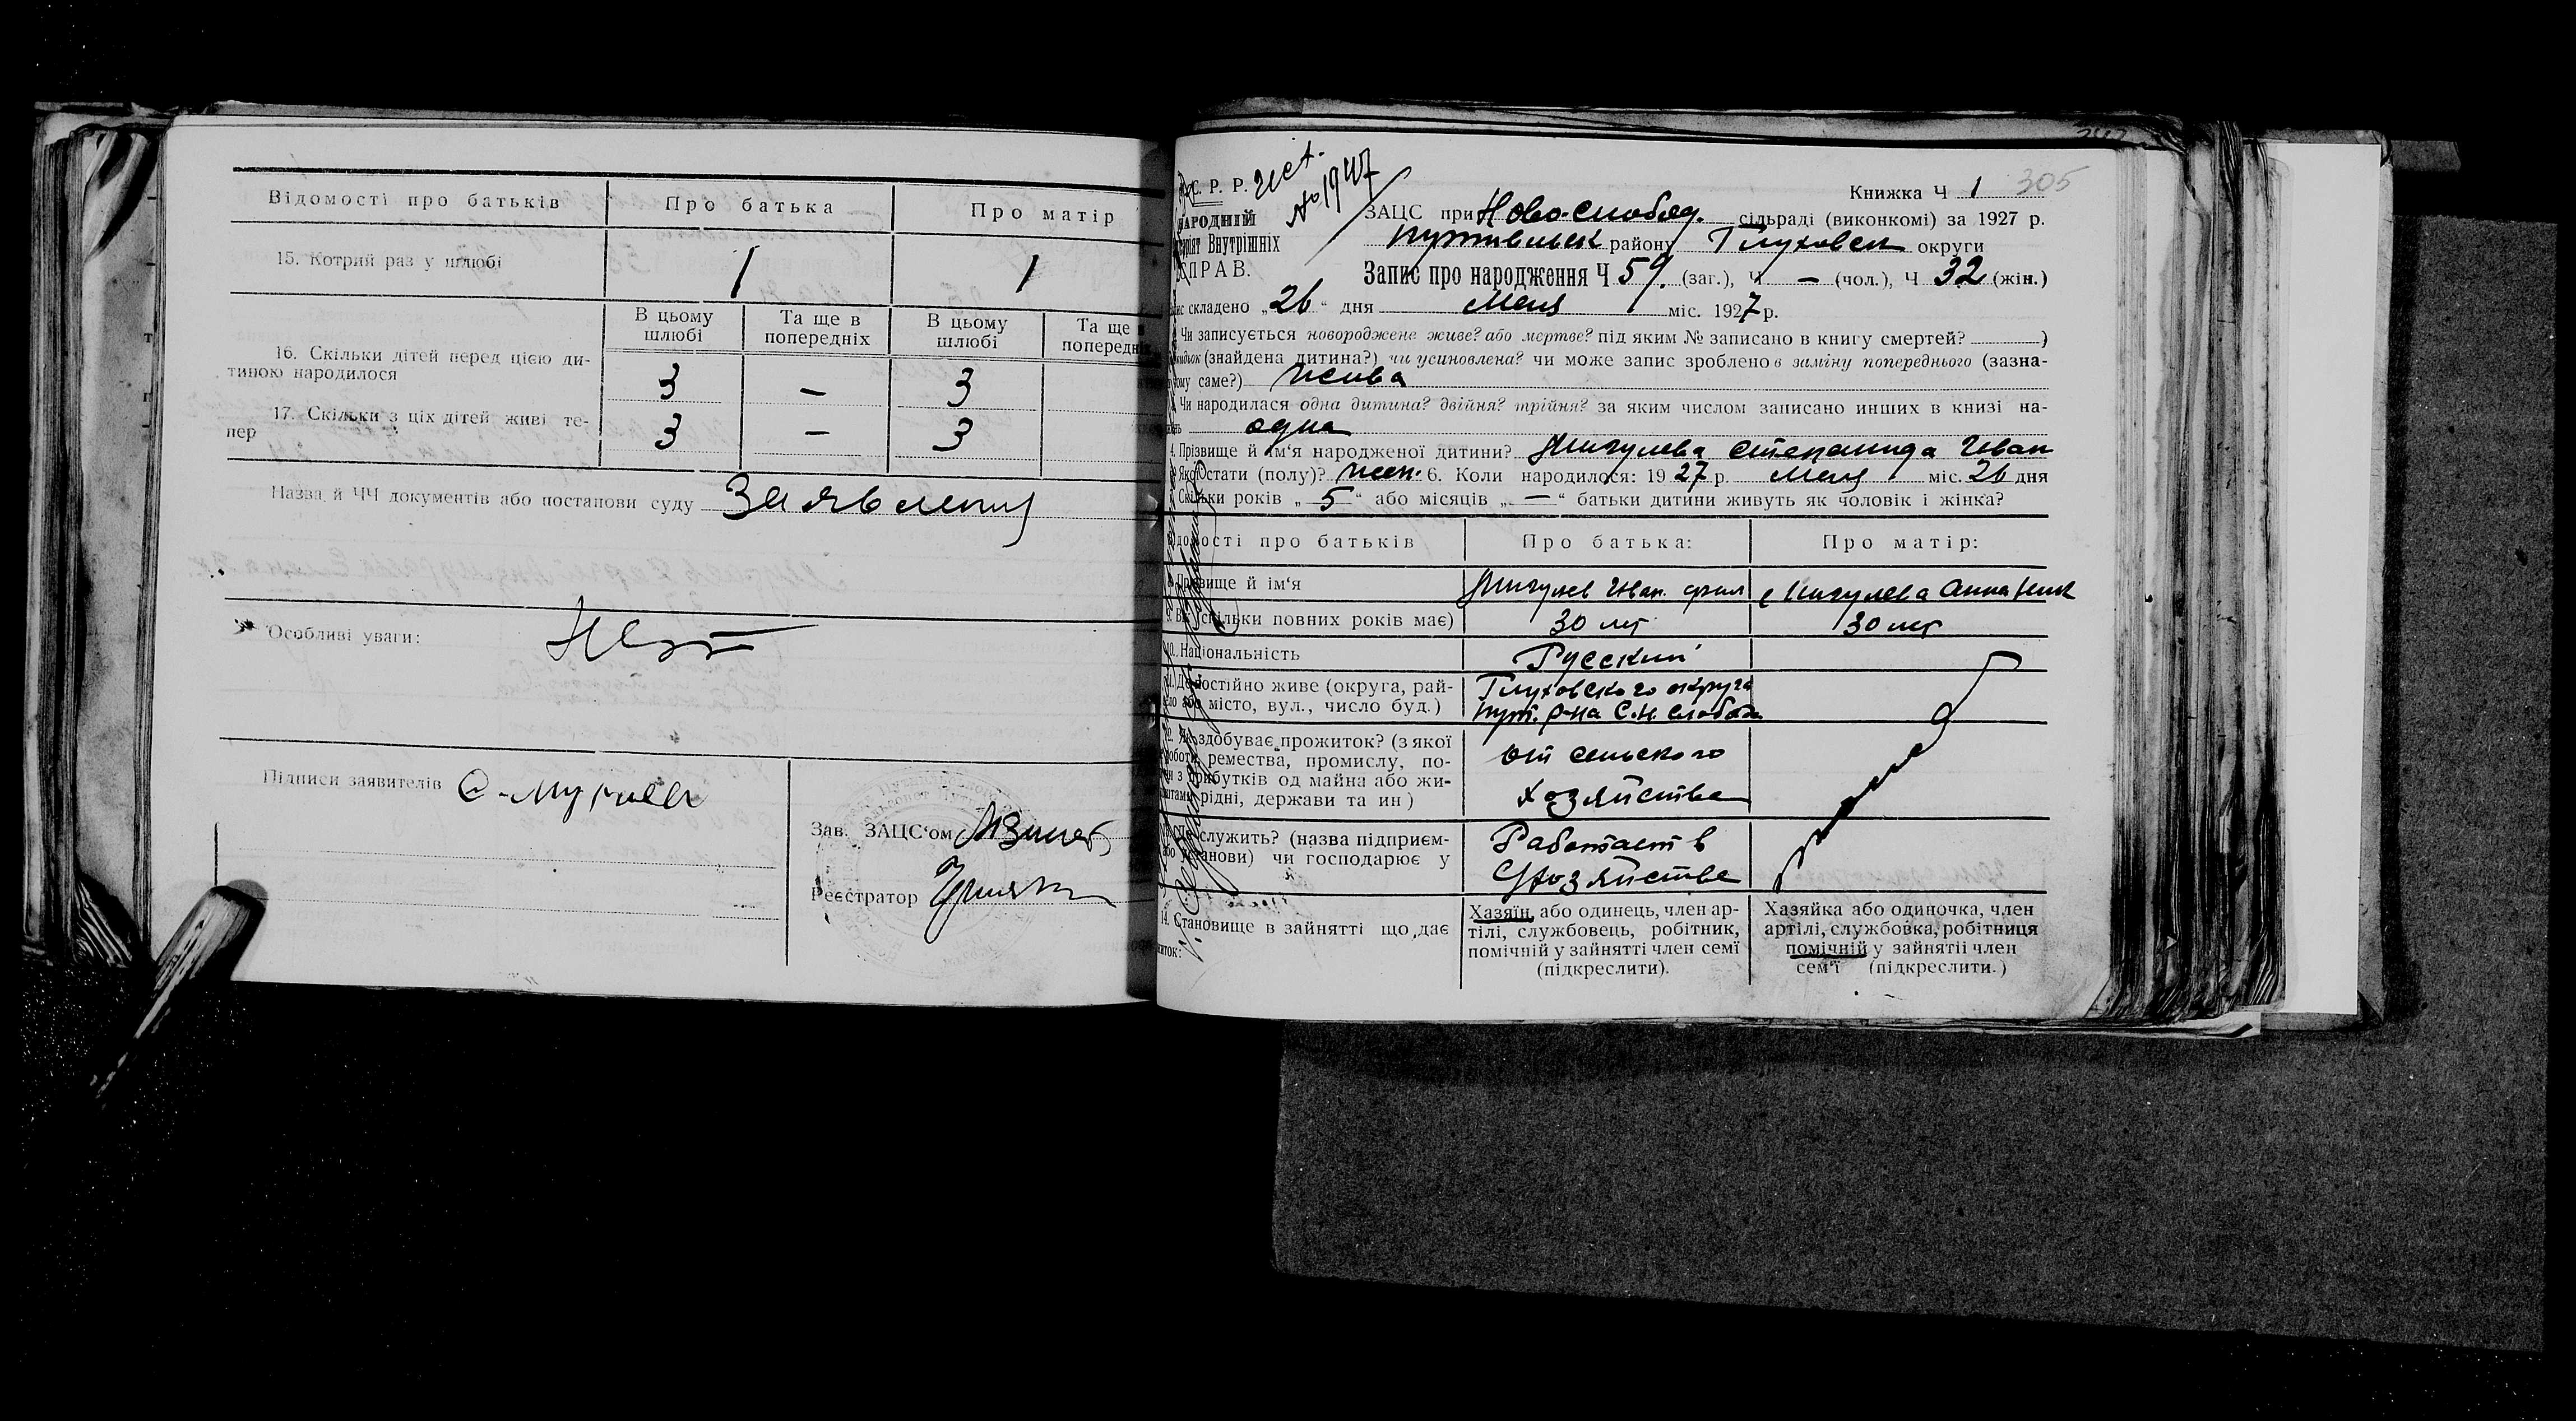 Відомості про батьків Про батька Про матір
15. Котрий раз у шлюбі 1 1
В цьому шлюбі Та ще в попередніх В цьому шлюбі Та ще в
16. Скільки дітей перед цією ди-
тиною народилося 3 — 3
17. Скільки з ціх дітей живі те-
пер 3 — 3
Назва й ЧЧ документів або постанови суду Заявления
Особливі уваги: Нет
Підписи заявителів
Зав. ЗАЦС‘ом
Реєстратор
С. Р. Р.
НАРОДНИЙ
Внутрішніх
СПРАВ.
No 1947
Книжка Ч 1 305
ЗАЦС при Ново-слобод. сільраді (виконкомі) за 1927 р.
Путивльск району Глуховск округи
Запис про народження Ч 59. (заг.), Ч — (чол.), Ч 32 (жін.)
складено „26“ дня Мая міс. 1927 р.
Чи записується новороджене живе? або мертве? під яким № записано в книгу смертей? )
(знайдена дитина?) чи усиновлена? чи може запис зроблено в заміну попереднього (зазна-
саме?) жива
Чи народилася одна дитина? двійня? трійня? за яким числом записано инших в книзі на-
одна
4. Прізвище й ім‘я народженої дитини? Жигулева Степанида Иван
Якої стати (полу)? жен. 6. Коли народилося: 1927 р. Мая міс. 26 дня
Скільки років „5“ або місяців „—“ батьки дитини живуть як чоловік і жінка?
Відомості про батьків Про батька: Про матір:
8. Прізвище й ім‘я Жигулев Иван Жигулева Анна Ник
9. Вік (скільки повних років має) 30 лет 30 лет
10. Національність Русский
11. Де постійно живе (округа, рай- Глуховского округа
або місто, вул., число буд.) Пут. р-на С. Н. Слобода
12. Як здобуває прожиток? (з якої
роботи, ремества, промислу, по- от сельского
з прибутків од майна або жи-
рідні, держави та ин) хозяйства
служить? (назва підприєм- Работает в
або установи) чи господарює у С/хозяйстве
14. Становище в зайнятті що дає
Хазяїн або одинець, член ар-
тілі, службовець, робітник,
помічній у зайнятті член семї
(підкреслити).
Хазяйка або одиночка, член
артілі, службовка, робітниця
помічній у зайнятіі член
сем‘ї (підкреслити.)